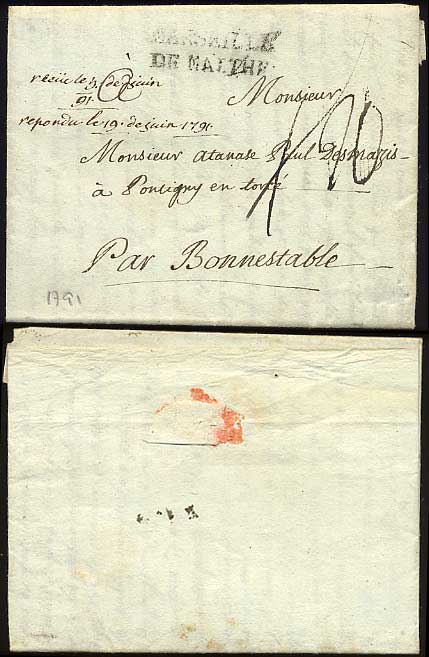 MARSEILLE
DE MALTHE
à
Monsieur
reçüe le de juin
91.
repondu le 19. de juin 1791.
Monsieur atanase Paul Desmazis
à Pontigny en torcé
Par Bonnestable
1791